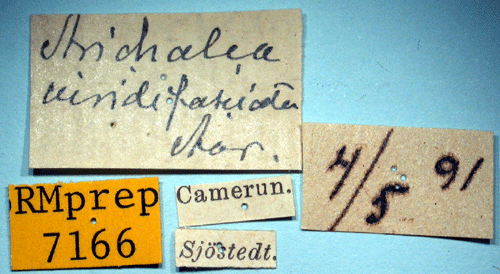 Orichalcia
viridifasciata
Aur.
RMprep
7166
Camerun.
Sjöstedt.
4/5 91